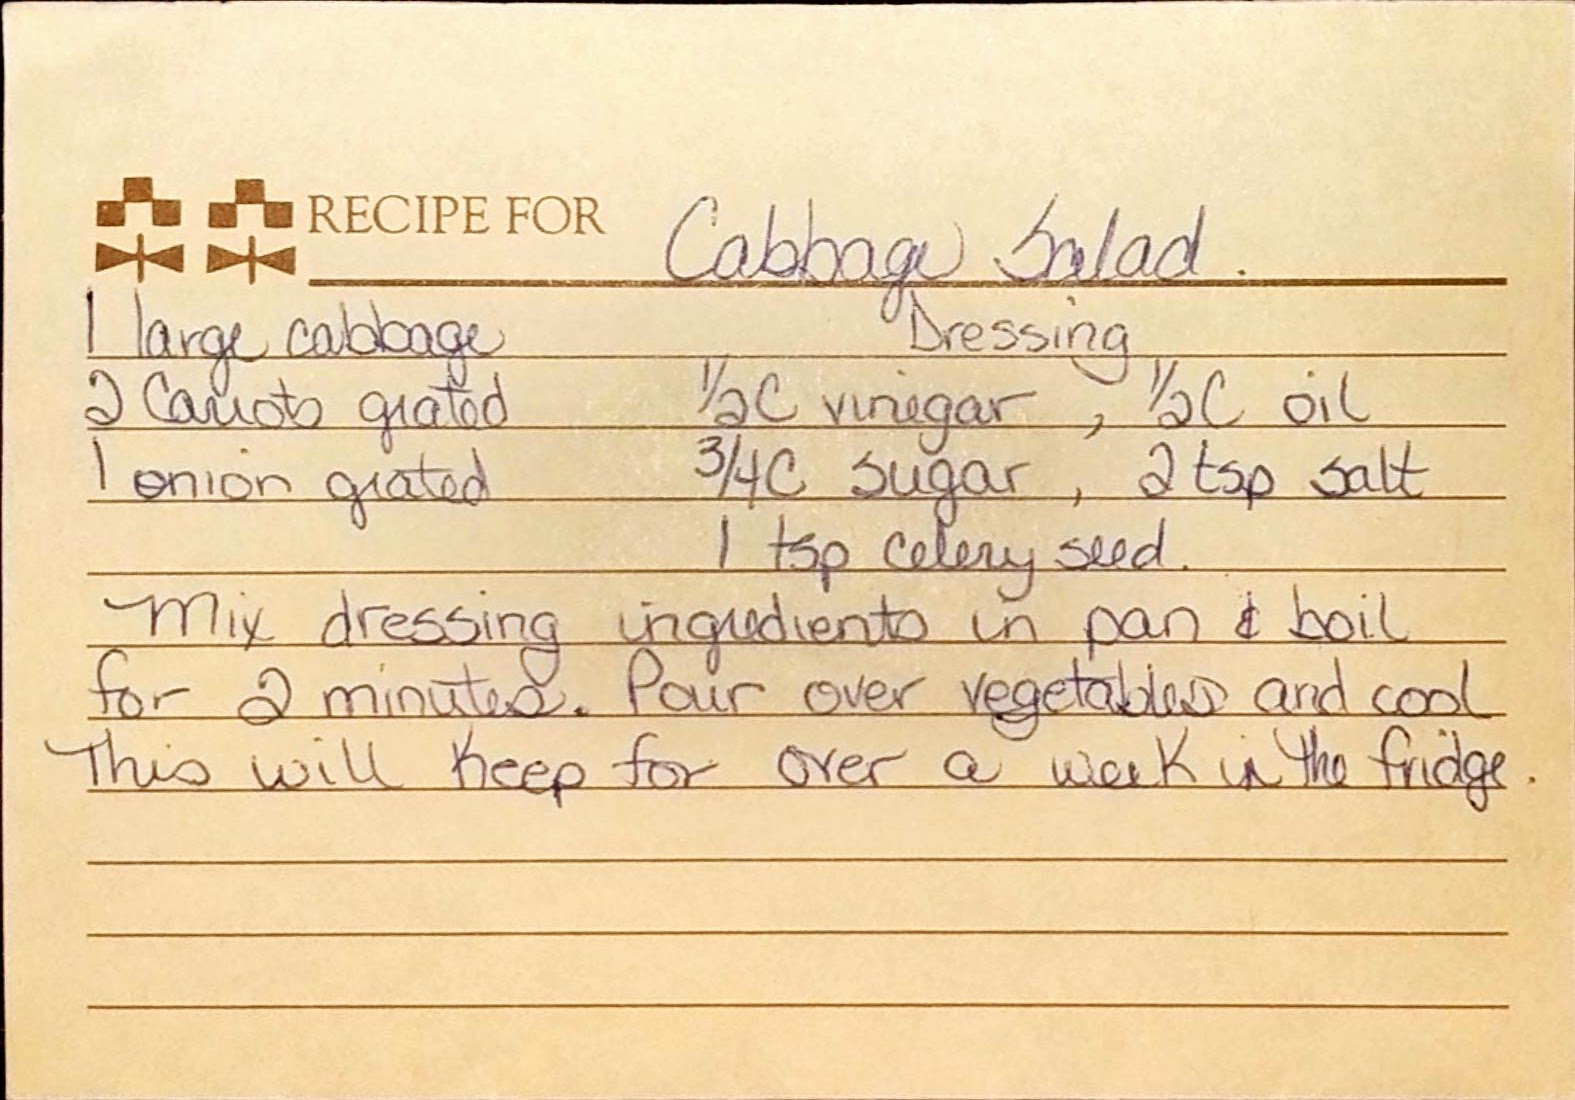 RECIPE FOR Cabbage Salad.
1 large cabbage Dressing
2 Carrots grated 1/2C vinegar , 1/2C oil
1 onion grated 3/4C sugar , 2 tsp salt
1 tsp celery seed.
Mix dressing ingredients in pan & boil
for 2 minutes. Pour over vegetables and cool
This will keep for over a week in the fridge.